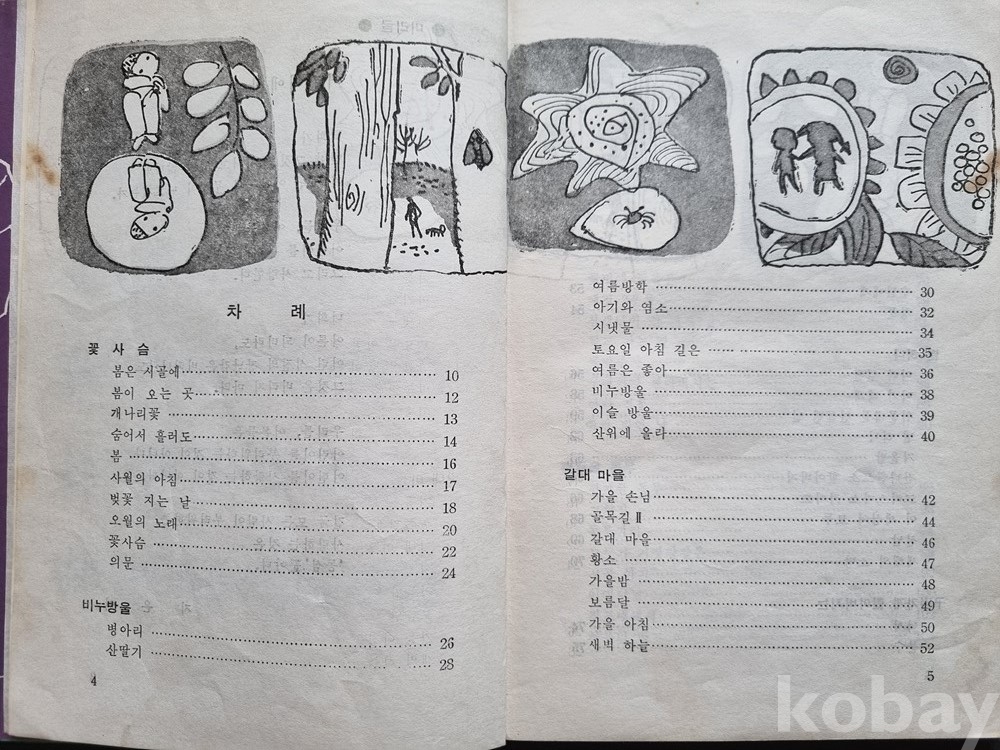 차 례
꽃 사 슴
봄은 시골에 10
봄이 오는 곳 12
개나리꽃 13
숨어서 흘러도 14
봄 16
사월의 아침 17
벚꽃 지는 날 18
오월의 노래 20
꽃사슴 22
의문 24
비누방울
병아리 26
산딸기 28
4
여름방학 30
아기와 염소 32
시냇물 34
토요일 아침 길은 35
여름은 좋아 36
비누방울 38
이슬 방울 39
산위에 올라 40
갈대 마을
가을 손님 42
골목길 Ⅱ 44
갈대 마을 46
황소 47
가을밤 48
보름달 49
가을 아침 50
새벽 하늘 52
5
kobay